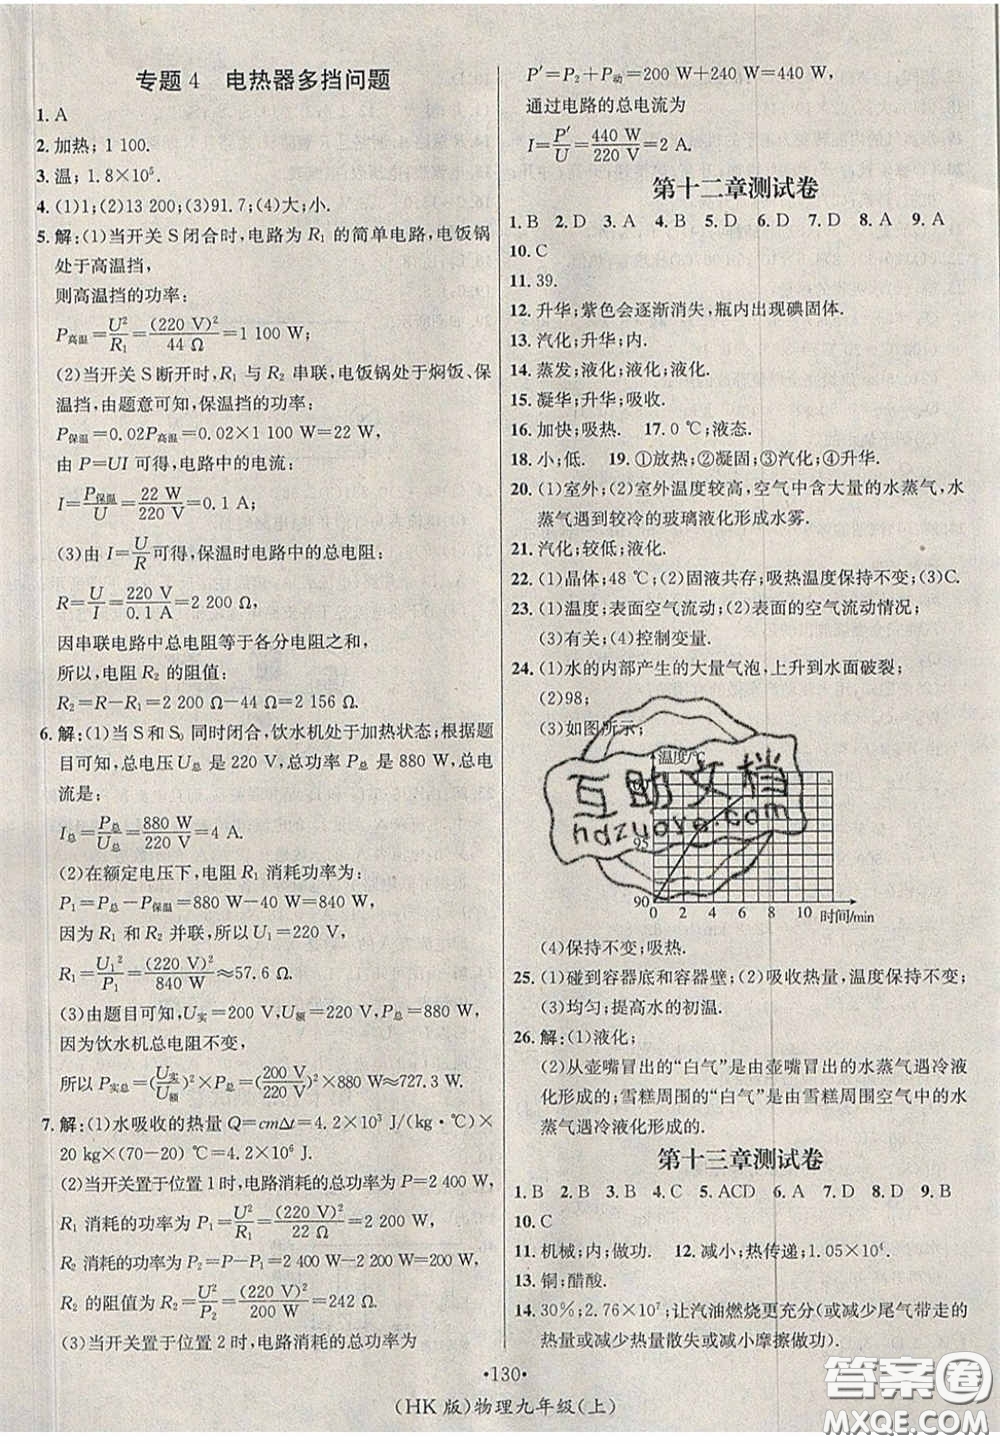 专题4 电热器多挡问题
1. A
2. 加热；1 100.
3. 温；1.8×10⁵.
4. (1)1；(2)13 200；(3)91.7；(4)大；小.
5. 解：(1)当开关S闭合时，电路为R₁的简单电路，电饭锅
处于高温挡，
则高温挡的功率：
P高温=U²/R₁=(220 V)²/44 Ω=1 100 W；
(2)当开关S断开时，R₁与R₂串联，电饭锅处于焖饭、保
温挡，由题意可知，保温挡的功率：
P保温=0.02P高温=0.02×1 100 W=22 W，
由P=UI可得，电路中的电流：
I=P保温/U=22 W/220 V=0.1 A；
(3)由I=U/R可得，保温时电路中的总电阻：
R=U/I=220 V/0.1 A=2 200 Ω，
因串联电路中总电阻等于各分电阻之和，
所以，电阻R₂的阻值：
R₂=R－R₁=2 200 Ω－44 Ω=2 156 Ω.
6. 解：(1)当S和S₀同时闭合，饮水机处于加热状态；根据题
目可知，总电压U总是220 V，总功率P总是880 W，总电
流是：
I总=P总/U总=880 W/220 V=4 A.
(2)在额定电压下，电阻R₁消耗功率为：
P₁=P总－P保温=880 W－40 W=840 W，
因为R₁和R₂并联，所以U₁=220 V，
R₁=U₁²/P₁=(220 V)²/840 W≈57.6 Ω.
(3)由题目可知，U实=200 V，U额=220 V，P总=880 W，
因为饮水机总电阻不变，
所以P实总=(U实/U额)²×P总=(200 V/220 V)²×880 W≈727.3 W.
7. 解：(1)水吸收的热量Q=cmΔt=4.2×10³ J/(kg·℃)×
20 kg×(70－20) ℃=4.2×10⁶ J.
(2)当开关置于位置1时，电路消耗的总功率P=2 400 W，
R₁消耗的功率为P₁=U²/R₁=(220 V)²/22 Ω=2 200 W，
R₂消耗的功率为P₂=P－P₁=2 400 W－2 200 W=200 W，
R₂的阻值为R₂=U²/P₂=(220 V)²/200 W=242 Ω.
(3)当开关置于位置2时，电路消耗的总功率为
P′=P₂+P动=200 W+240 W=440 W，
通过电路的总电流为
I=P′/U=440 W/220 V=2 A.
第十二章测试卷
1. B 2. D 3. A 4. B 5. D 6. D 7. D 8. A 9. A
10. C
11. 39.
12. 升华；紫色会逐渐消失，瓶内出现碘固体.
13. 汽化；升华；内.
14. 蒸发；液化；液化；液化.
15. 凝华；升华；吸收.
16. 加快；吸热. 17. 0 ℃；液态.
18. 小；低. 19. ①放热；②凝固；③汽化；④升华.
20. (1)室外；(2)室外温度较高，空气中含大量的水蒸气，水
蒸气遇到较冷的玻璃液化形成水雾.
21. 汽化；较低；液化.
22. (1)晶体；48 ℃；(2)固液共存；吸热温度保持不变；(3)C.
23. (1)温度；表面空气流动；(2)表面的空气流动情况；
(3)有关；(4)控制变量.
24. (1)水的内部产生的大量气泡，上升到水面破裂；
(2)98；
(3)如图所示；
温度/℃
互助文档
hdzuoye.com
95
90
0 2 4 6 8 10 时间/min
(4)保持不变；吸热.
25. (1)碰到容器底和容器壁；(2)吸收热量，温度保持不变；
(3)均匀；提高水的初温.
26. 解：(1)液化；
(2)从壶嘴冒出的“白气”是由壶嘴冒出的水蒸气遇冷液
化形成的；雪糕周围的“白气”是由雪糕周围空气中的水
蒸气遇冷液化形成的.
第十三章测试卷
1. B 2. B 3. B 4. C 5. ACD 6. A 7. D 8. D 9. B
10. C
11. 机械；内；做功. 12. 减小；热传递；1.05×10⁶.
13. 铜；醋酸.
14. 30%；2.76×10⁷；让汽油燃烧更充分(或减少尾气带走的
热量或减少热量散失或减小摩擦做功).
·130·
(HK版)物理九年级(上)
答案圈
MXQE.COM